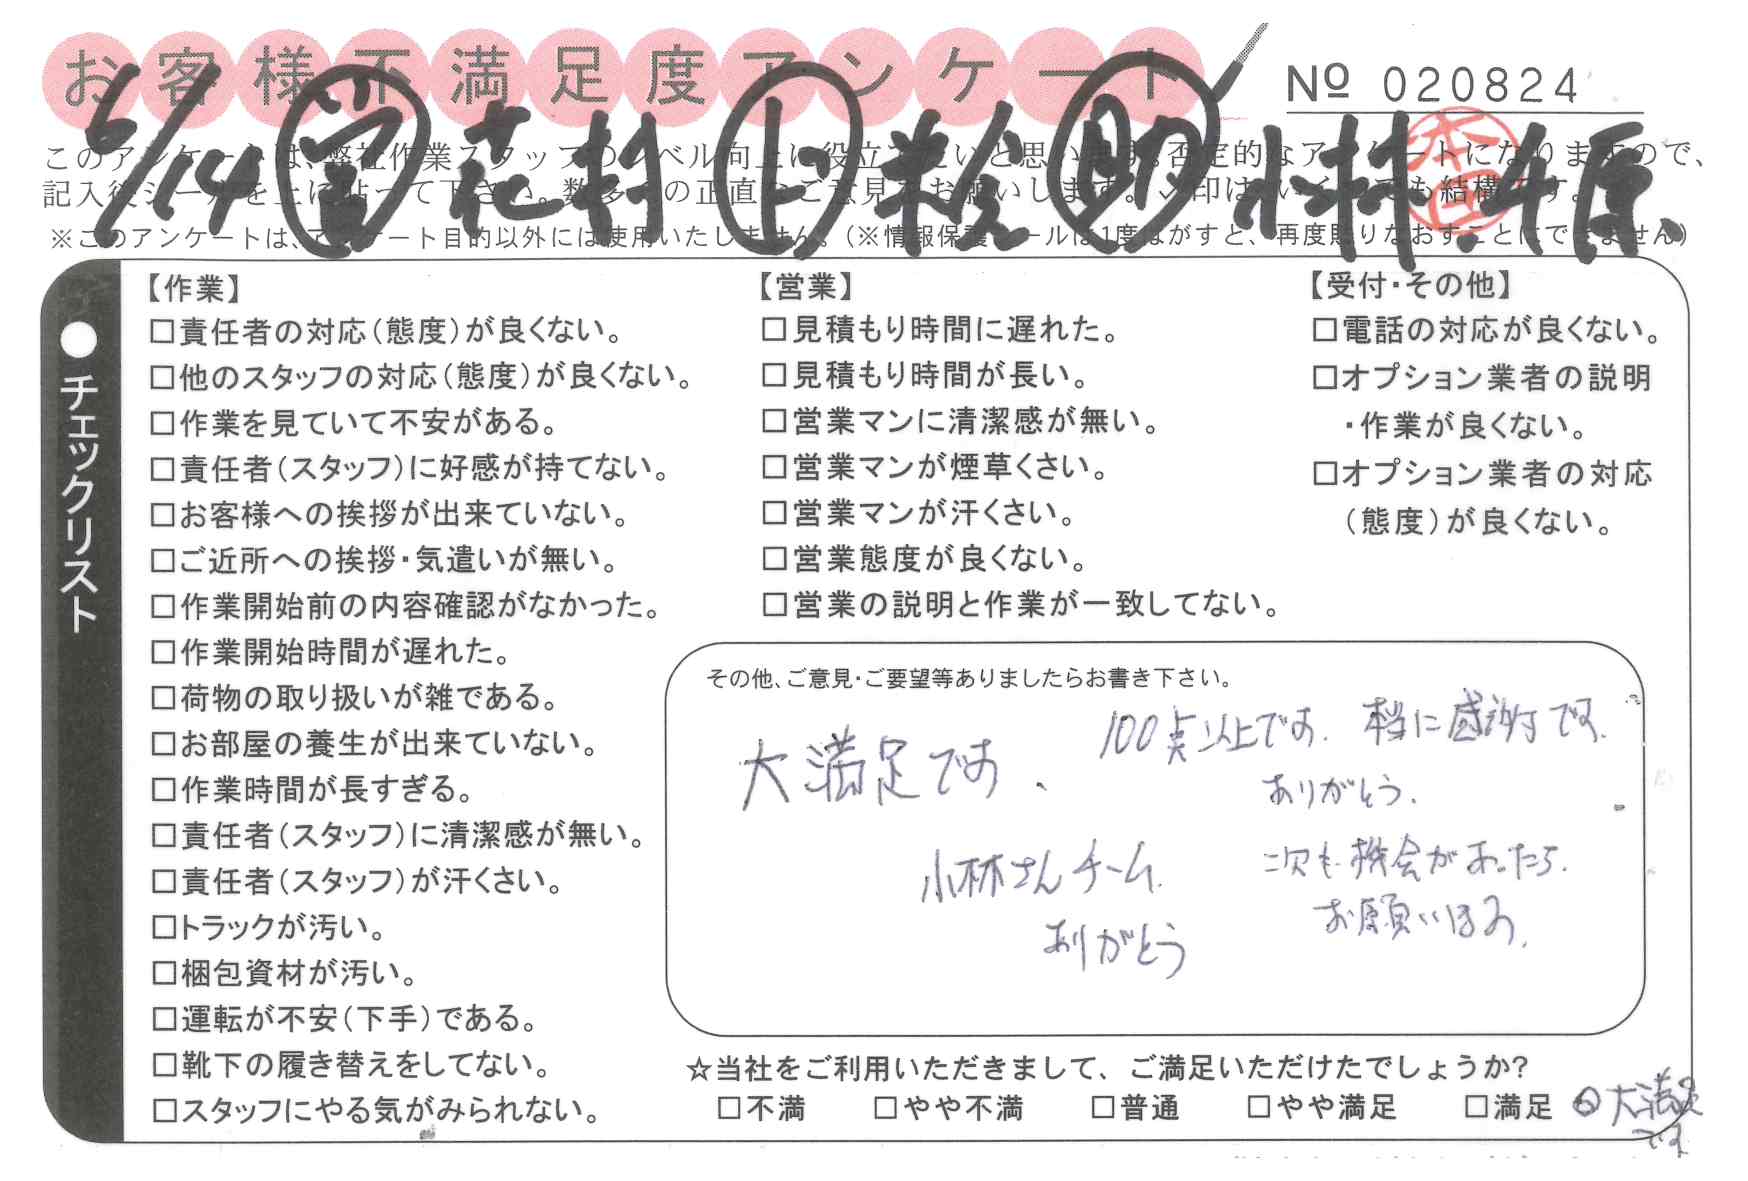 お客様不満足度アンケート
№ 020824
6/14 営 花村 ド 兼松 助 小林、斗原、
本日
このアンケートは、弊社作業スタッフのレベル向上に役立てたいと思います。否定的なアンケートになりますので、
記入後シールを上に貼って下さい。数多くの正直なご意見をお願いします。✓印はいくつでも結構です。
※このアンケートは、アンケート目的以外には使用いたしません。(※情報保護シールは1度はがすと、再度貼りなおすことはできません)
●チェックリスト
【作業】
□責任者の対応(態度)が良くない。
□他のスタッフの対応(態度)が良くない。
□作業を見ていて不安がある。
□責任者(スタッフ)に好感が持てない。
□お客様への挨拶が出来ていない。
□ご近所への挨拶・気遣いが無い。
□作業開始前の内容確認がなかった。
□作業開始時間が遅れた。
□荷物の取り扱いが雑である。
□お部屋の養生が出来ていない。
□作業時間が長すぎる。
□責任者(スタッフ)に清潔感が無い。
□責任者(スタッフ)が汗くさい。
□トラックが汚い。
□梱包資材が汚い。
□運転が不安(下手)である。
□靴下の履き替えをしてない。
□スタッフにやる気がみられない。
【営業】
□見積もり時間に遅れた。
□見積もり時間が長い。
□営業マンに清潔感が無い。
□営業マンが煙草くさい。
□営業マンが汗くさい。
□営業態度が良くない。
□営業の説明と作業が一致してない。
【受付・その他】
□電話の対応が良くない。
□オプション業者の説明
・作業が良くない。
□オプション業者の対応
(態度)が良くない。
その他、ご意見・ご要望等ありましたらお書き下さい。
大満足です、
100点以上です. 本当に感謝です.
ありがとう.
小林さんチーム.
ありがとう
二次も機会があったら.
お願いします.
☆当社をご利用いただきまして、ご満足いただけたでしょうか?
□不満 □やや不満 □普通 □やや満足 □満足 大満足
です